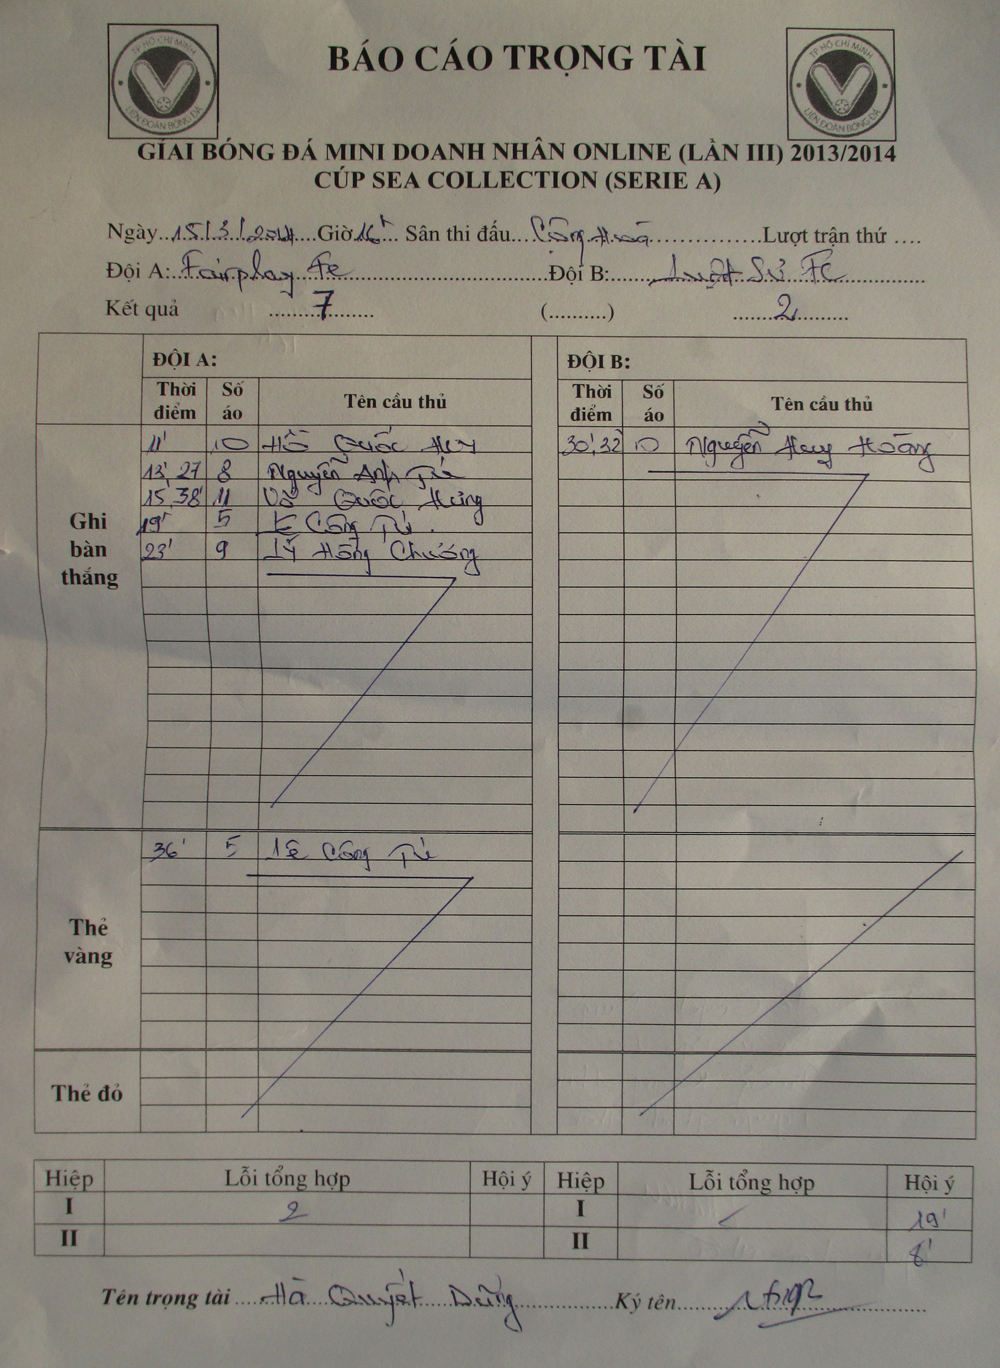 TP HỒ CHÍ MINH
LIÊN ĐOÀN BÓNG ĐÁ
BÁO CÁO TRỌNG TÀI
TP HỒ CHÍ MINH
LIÊN ĐOÀN BÓNG ĐÁ
GIẢI BÓNG ĐÁ MINI DOANH NHÂN ONLINE (LẦN III) 2013/2014
CÚP SEA COLLECTION (SERIE A)
Ngày 15/3/2014 Giờ 16h Sân thi đấu Cộng Hoà Lượt trận thứ ....
Đội A: Fairplay Fc Đội B: Luật Sư FC
Kết quả 7 (..........) 2
ĐỘI A: ĐỘI B:
Thời điểm Số áo Tên cầu thủ Thời điểm Số áo Tên cầu thủ
Ghi bàn thắng
11' 10 Hồ Quốc Huy 30',32' 10 Nguyễn Huy Hoàng
13', 27 8 Nguyễn Anh Tú
15',38' 11 Võ Quốc Hưng
19' 5 Lê Công Tú
23' 9 Lý Hồng Chương
Thẻ vàng
36' 5 Lê Công Tú
Thẻ đỏ
Hiệp Lỗi tổng hợp Hội ý Hiệp Lỗi tổng hợp Hội ý
I 2 I 19'
II II 8'
Tên trọng tài Hà Quyết Dũng Ký tên